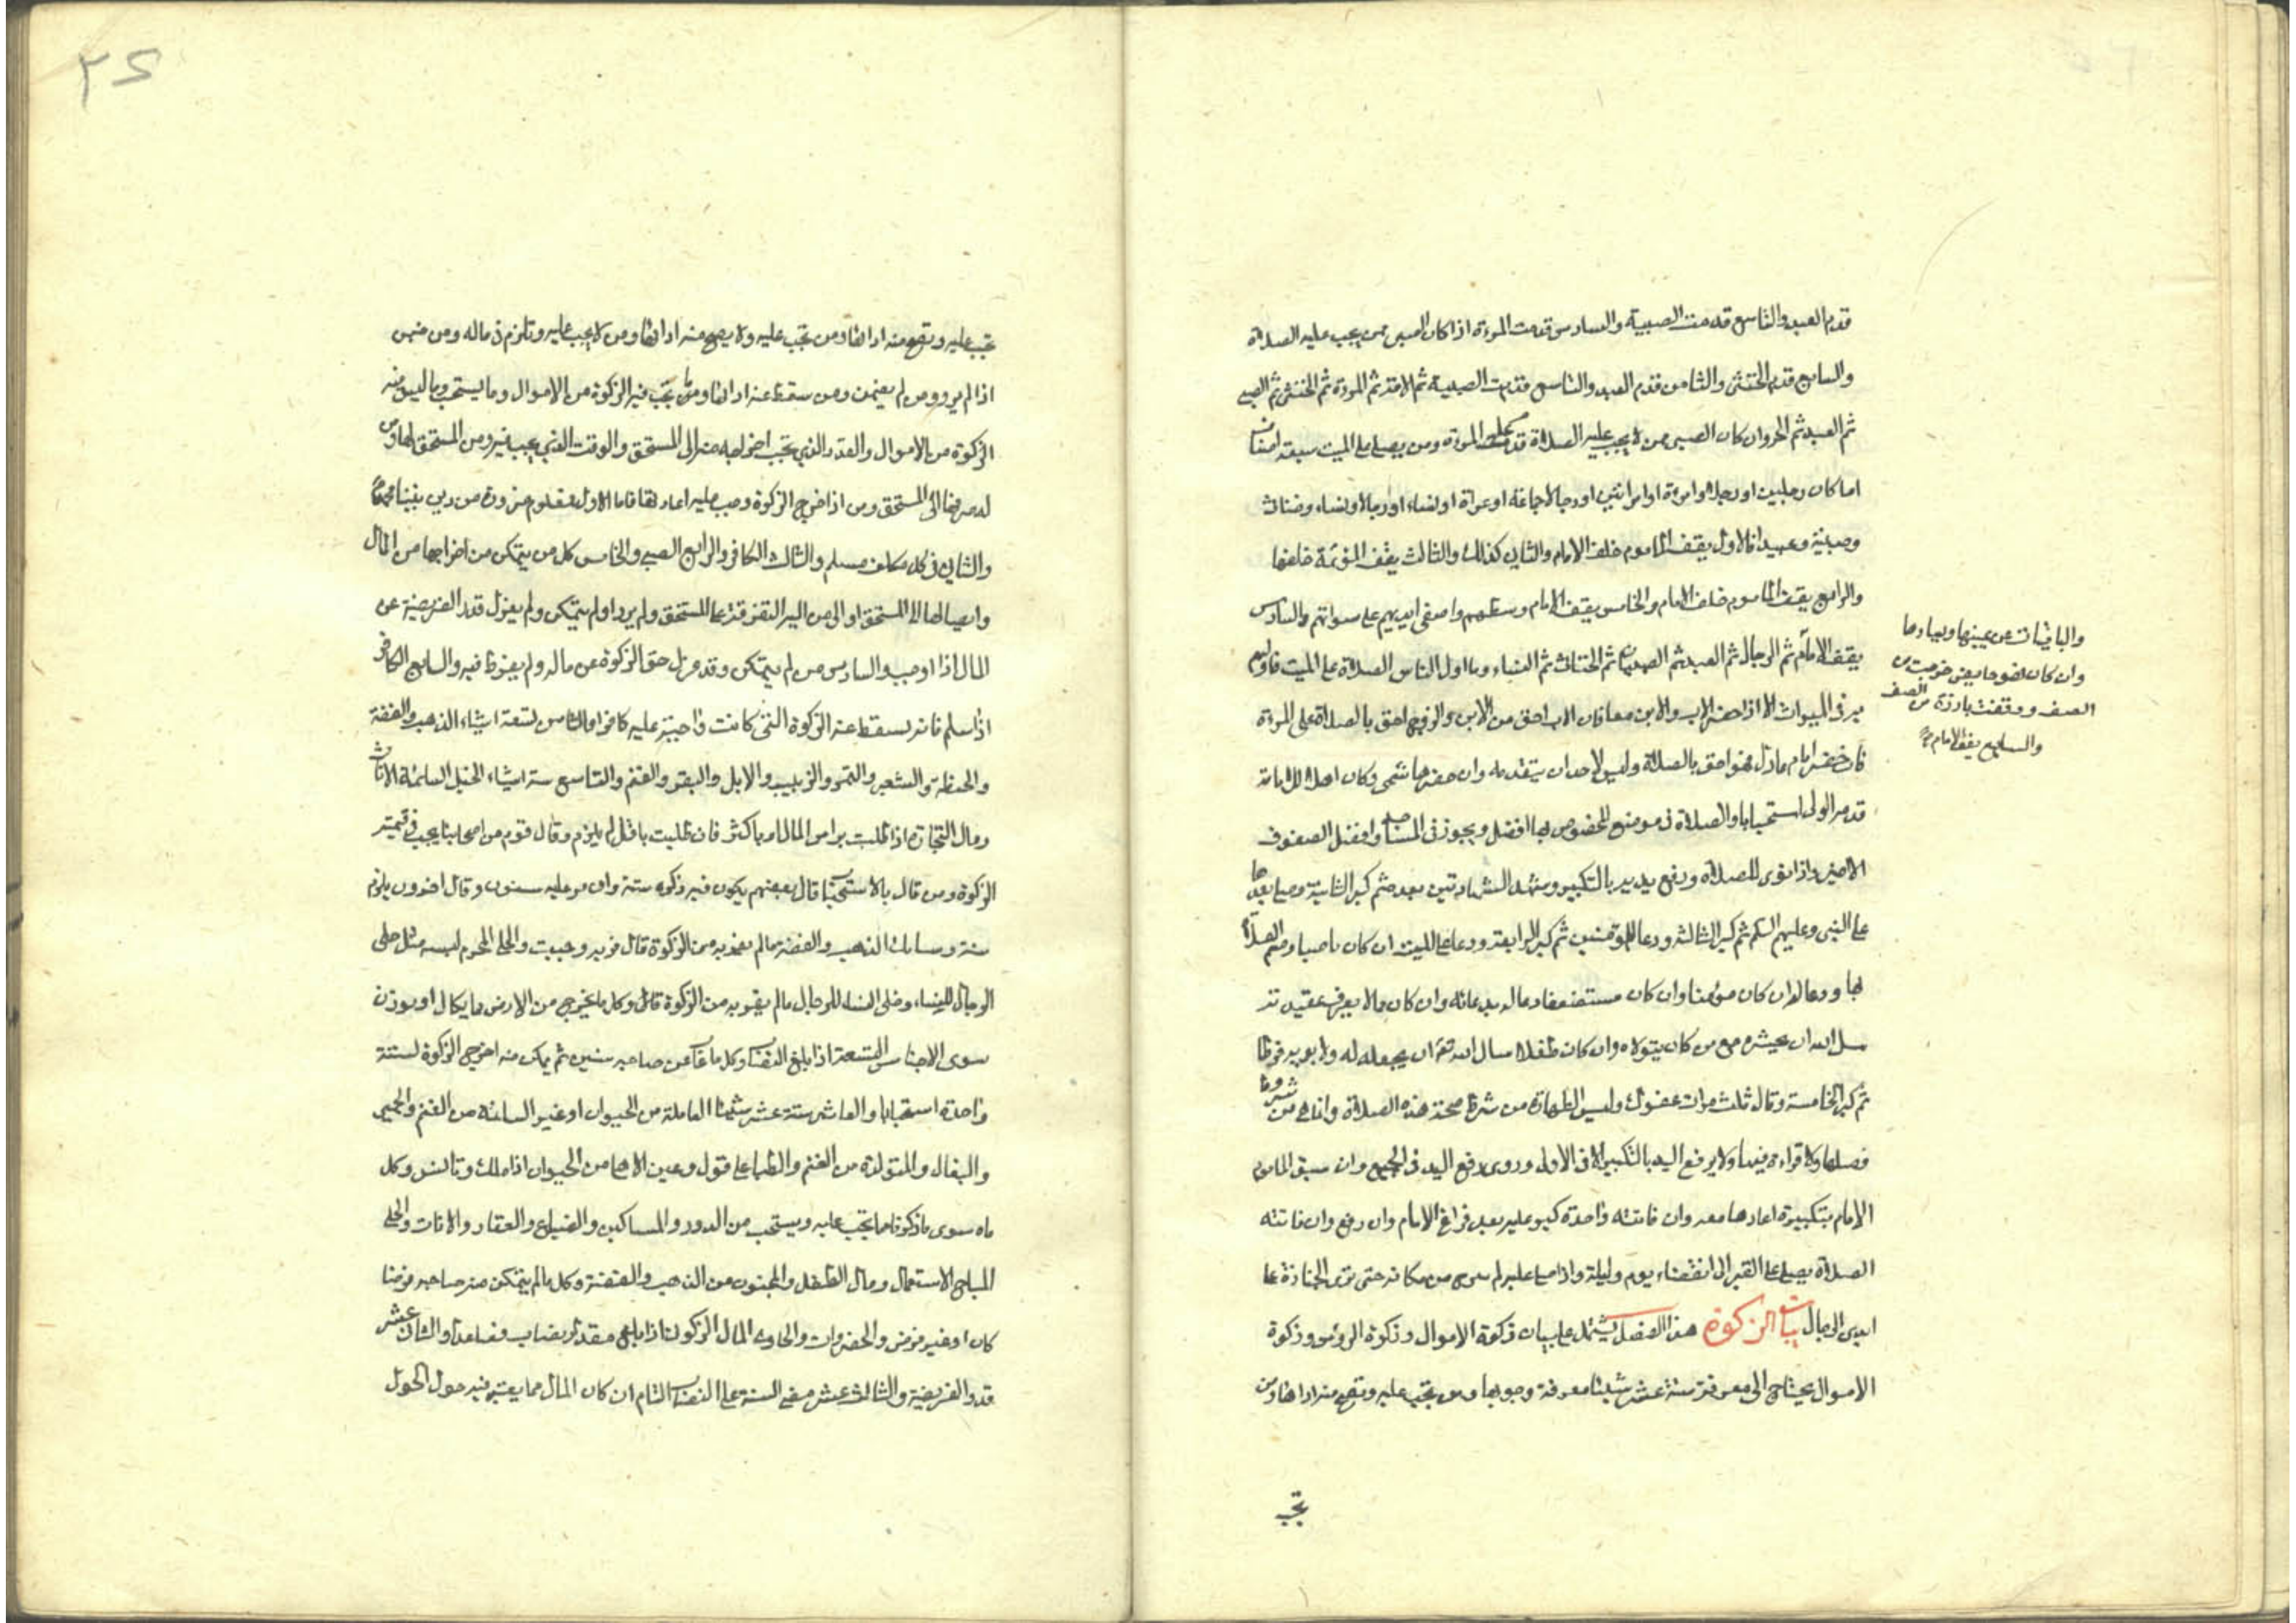 قدم العبد والتاسع قدمت الصبية والسادس قدمت المرءة اذا كان الصبى ممن يجب عليه الصلاة
والسابع قدم الخنثى والثامن قدم العبد والتاسع قدمت الصبية ثم الامة ثم المرءة ثم الخنثى ثم الصبي
ثم العبد ثم الحر وان كان الصبى ممن لا يجب عليه الصلاة قدمت المرءة ومن يصلي على الميت سبعة اصناف
اما كان رجلين او رجلا وامرءة او امراتين او رجالا جماعة او عراة او نساء او رجالا ونساء وخناث
وصبية وعبيدا فالاول يقف الماموم خلف الامام والثاني كذلك والثالث يقف المؤتمة خلفها
والرابع يقف الماموم خلف الامام والخامس يقف الامام وسطهم واضعى ايديهم على سوآتهم والسادس
يقف الامام ثم الرجال ثم العبيد ثم الصبيان ثم الخناث ثم النساء وبا اولى الناس الصلاة على الميت فاوليهم
به فى الميراث الا اذا حضر الاب والابن معا فان الاب احق من الابن والزوج احق بالصلاة على المرءة
فان حضر امام عادل فهو احق بالصلاة وليس لاحد ان يتقدمه وان حضر هاشمى وكان اهلا للامامة
قدمه الولى استحبابا والصلاة فى موضع المخصوص بها افضل ويجوز فى المساجد وافضل الصفوف
الاخير واذا نوى للصلاة ورفع يديه بالتكبير وشهد الشهادتين بعده ثم كبر الثانية وصلى بعدها
على النبى وعليهم السلم ثم كبر الثالثة ودعا للمؤمنين ثم كبر الرابعة ودعا على الميت ان كان ناصبا وضم الصلاة
لها ودعا له ان كان مؤمنا وان كان مستضعفا دعا له بدعائه وان كان مالا يعرف عقيدته
سل الله ان يحشره مع من كان يتولاه وان كان طفلا سال الله تعالى ان يجعله له ولابويه فرطا
ثم كبر الخامسة وقال ثلث مرات عفوك وليس الطهارة من شرط صحة هذه الصلاة وانما هى من شروط
فضلها ولا قراءة فيها ولا يرفع اليد بالتكبير الا فى الاولى وروى رفع اليد فى الجميع وان سبق الماموم
الامام بتكبيرة اعادها معه وان فاتته واحدة كبر عليه بعد فراغ الامام وان رفع وان فاتته
الصلاة يصلي على القبر الى انقضاء يوم وليلة واذا صلى عليه لم يبرح من مكانه حتى ترى الجنازة على
ايدى الرجال باب الزكوة هذا الفصل يشتمل على بيان زكوة الاموال وزكوة الرؤس وزكوة
الاموال يحتاج الى معرفة ستة عشر شيئا معرفة وجوبها ومن تجب عليه وتصح منه اداؤها ومن
تجب
والباقيات عن يمينها ويسارها
وان كان فضوحا يعنى خرجت من
الصف ووقفت بارزة من الصف
والسابع يقف الامام
٢٤
تجب عليه وتصح منه اداؤها ومن تجب عليه ولا يصح منه اداؤها ومن لا يجب عليه وتلزم فى ماله ومن ضمن
اذا لم يرد ومن لم يضمن ومن سقط عنه اداؤها وما تجب فيه الزكوة من الاموال وما يستحب وما ليس فيه
الزكوة من الاموال والقدر الذي تجب اخراجه منه الى المستحق والوقت الذي يجب فيه ومن المستحق لها ومن
له صرفها الى المستحق ومن اذا اخرج الزكوة وجب عليه اعادتها فاما الاول فمعلوم ضرورة من دين نبينا محمد
والثاني فى كل مكلف مسلم والثالث الكافر والرابع الصبي والخامس كل من يتمكن من اخراجها من المال
وايصالها الى المستحق او الى من اليه التفرقة على المستحق ولم يرد او لم يتمكن ولم يعزل قدر الفريضة عن
المال اذا اوجب والسادس من لم يتمكن وقد عزل حق الزكوة عن ماله ولم يفرط فيه والسابع الكافر
اذا سلم فانه يسقط عنه الزكوة التى كانت واجبة عليه كافرا والثامن تسعة اشياء الذهب والفضة
والحنطة والشعير والتمر والزبيب والابل والبقر والغنم والتاسع ستة اشياء الخيل السائمة الاناث
ومال التجارة اذا طلبت براس المال او باكثر فان طلبت باقل لم يلزم وقال قوم من اصحابنا يجب فى قيمته
الزكوة ومن قال بالاستحباب قال بعضهم يكون فيه زكوه سنة وان مر عليه سنون وقال اخرون يلزم
سنة وسبائك الذهب والفضة مالم يفر به من الزكوة فان فر به وجبت والحلى المحرم لبسه مثل حلى
الرجال للنساء وحلى النساء للرجال مالم يفر به من الزكوة فان وكل ما يخرج من الارض مما يكال او يوزن
سوى الاجناس التسعة اذا بلغ النصاب وكل ما غاب عن صاحبه سنين ثم تمكن منه اخرج الزكوة لسنة
واحدة استحبابا والعاشر ستة عشر شيئا العاملة من الحيوان او غير السائمة من الغنم والحمير
والبغال والمتولدة من الغنم والظبا على قول وعين الاهما من الحيوان اذا ملك وتانس وكل
ماه سوى ماذكرنا مما يجب عليه ويستحب من الدور والمساكين والضياع والعقار والاثاث والحلى
المباح الاستعمال ومال الطفل والمجنون من الذهب والفضة وكل مالم يتمكن منه صاحبه قرضا
كان او غير قرض والخضروات والحادى المال الزكوة اذا بلغ مقدار نصاب فصاعدا والثاني عشر
قدر الفريضة والثالث عشر مضى السنة على النصاب التام ان كان المال مما يعتبر فيه حول الحول